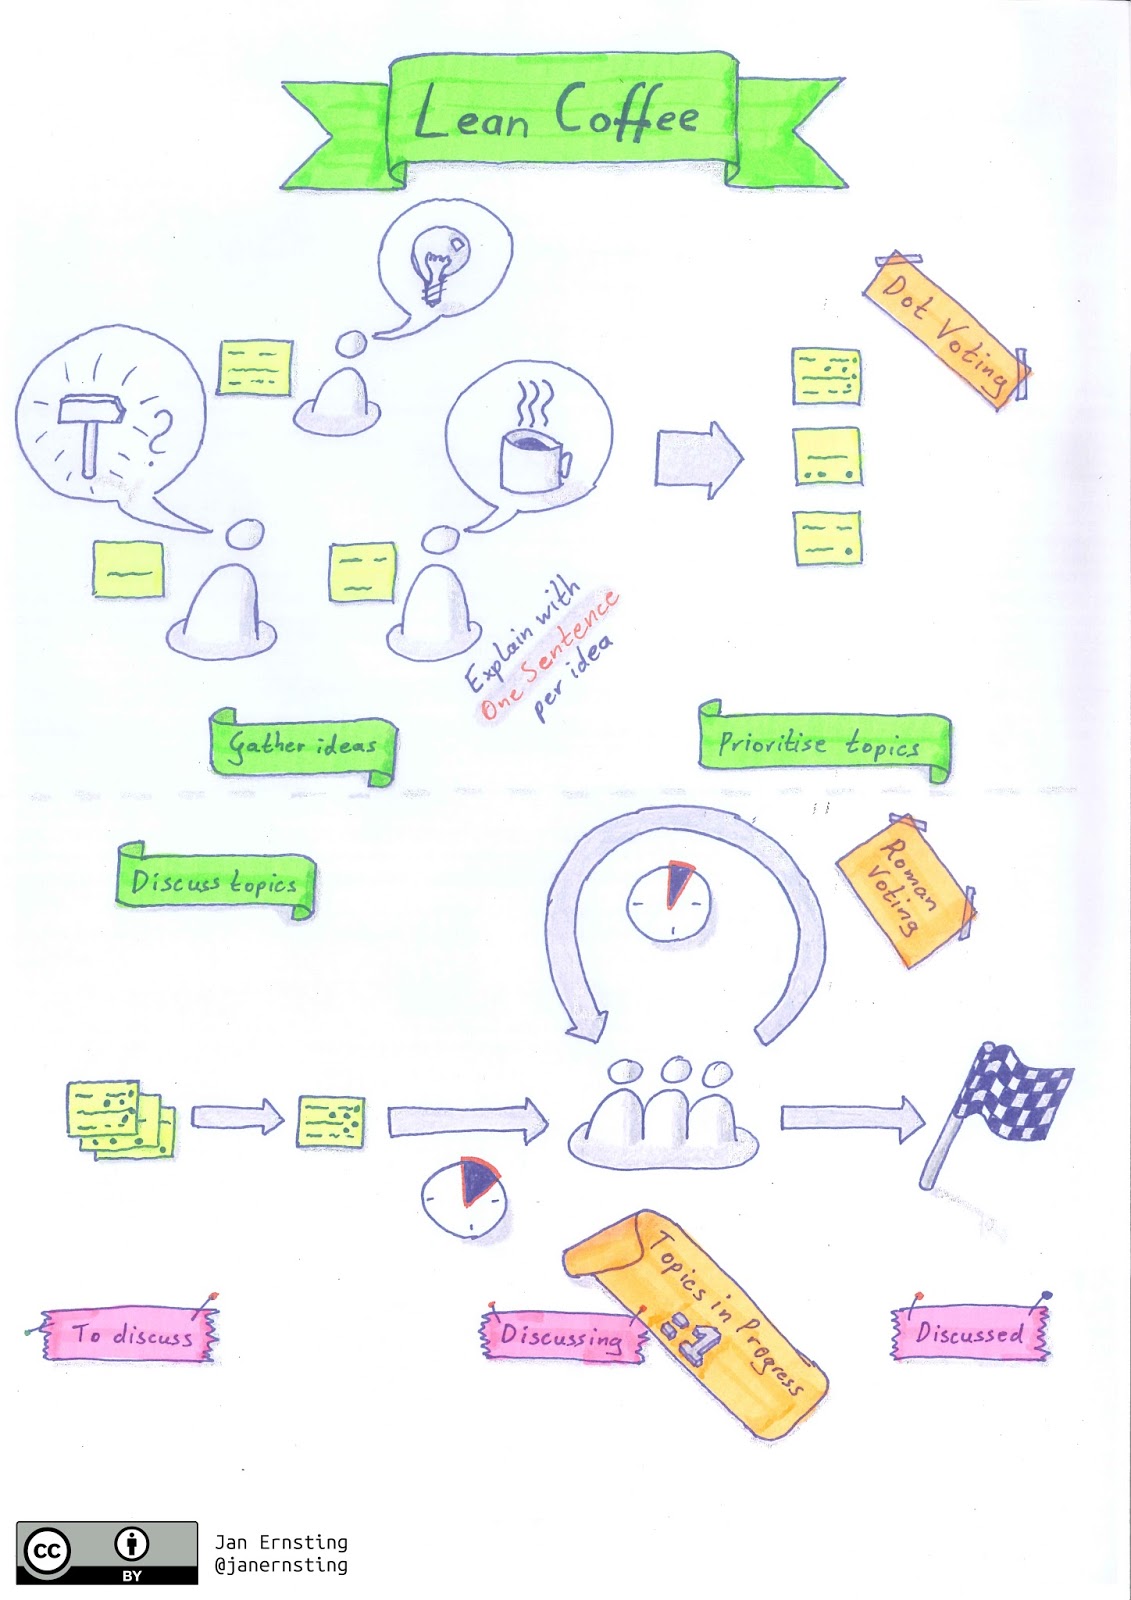 Lean Coffee
Dot Voting
Explain with
One Sentence
per idea
Gather ideas
Prioritise topics
Discuss topics
Roman
Voting
Topics in Progress
=1
To discuss
Discussing
Discussed
CC
BY
Jan Ernsting
@janernsting